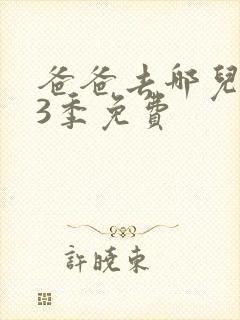 爸爸去哪兒
3季免費
許曉東